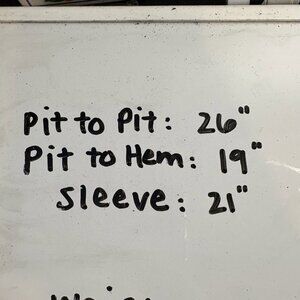 Pit to Pit: 26"
Pit to Hem: 19"
Sleeve: 21"